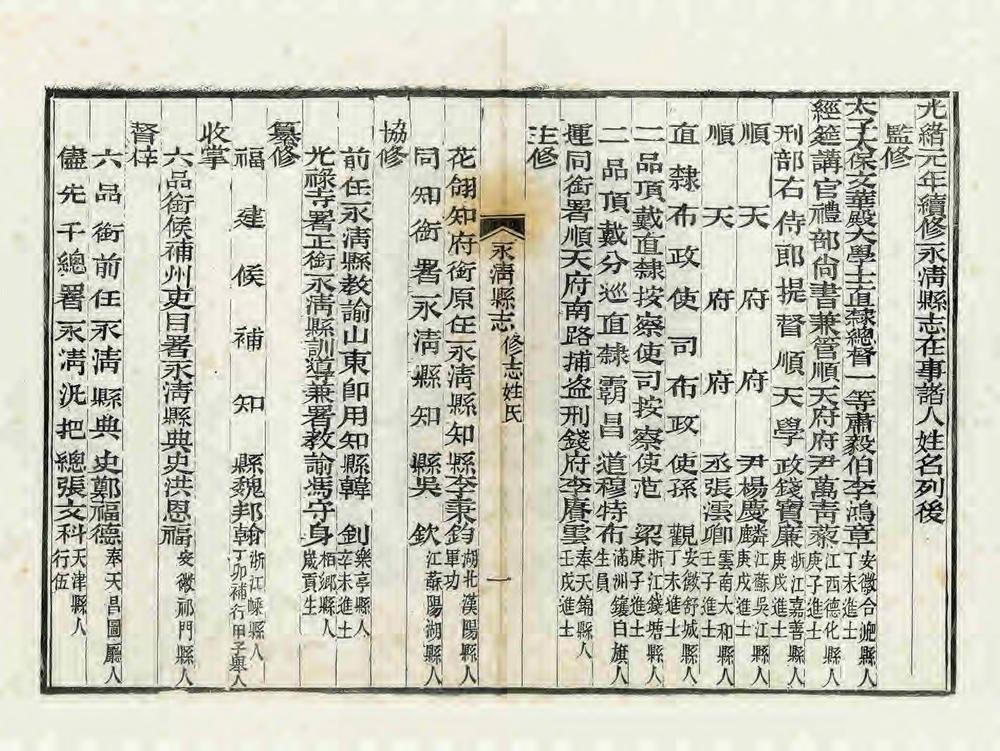 光緒元年續修永淸縣志在事諸人姓名列後
監修
太子太保文華殿大學士直隸總督一等肅毅伯李鴻章安徽合肥縣人丁未進士
經筵講官禮部尙書兼管順天府府尹萬靑藜江西德化縣人庚子進士
刑部右侍郎提督順天學政錢寶廉浙江嘉善縣人庚戌進士
順天府府尹楊慶麟江蘇吳江縣人庚戌進士
順天府府丞張澐卿雲南太和縣人壬子進士
直隸布政使司布政使孫觀安徽舒城縣人丁未進士
二品頂戴直隸按察使司按察使范梁浙江錢塘縣人庚子進士
二品頂戴分巡直隸霸昌道穆特布滿洲鑲白旗人生員
運同銜署順天府南路捕盜刑錢府李賡雲奉天錦縣人壬戌進士
主修
花翎知府銜原任永淸縣知縣李秉鈞湖北漢陽縣人軍功
同知銜署永淸縣知縣吳欽江蘇陽湖縣人
協修
前任永淸縣敎諭山東卽用知縣韓釗樂亭縣人辛未進士
光祿寺署正銜永淸縣訓導兼署敎諭馮守身栢鄉縣人歲貢生
纂修
福建候補知縣魏邦翰浙江嵊縣人丁卯補行甲子舉人
收掌
六品銜候補州吏目署永淸縣典史洪恩福安徽祁門縣人
督梓
六品銜前任永淸縣典史鄭福德奉天昌圖廳人
儘先千總署永淸汛把總張文科天津縣人行伍
永淸縣志
修志姓氏
一